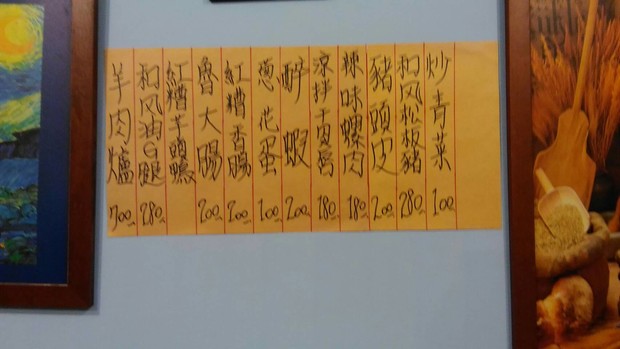 炒青菜 100
和风松板豬 280
豬頭皮 200
辣味螺肉 180
涼拌干貝唇 180
醉蝦 200
蔥花蛋 100
紅糟香腸 200
魯大腸 200
紅糟芋頭
和风油G腿 280
羊肉爐 700